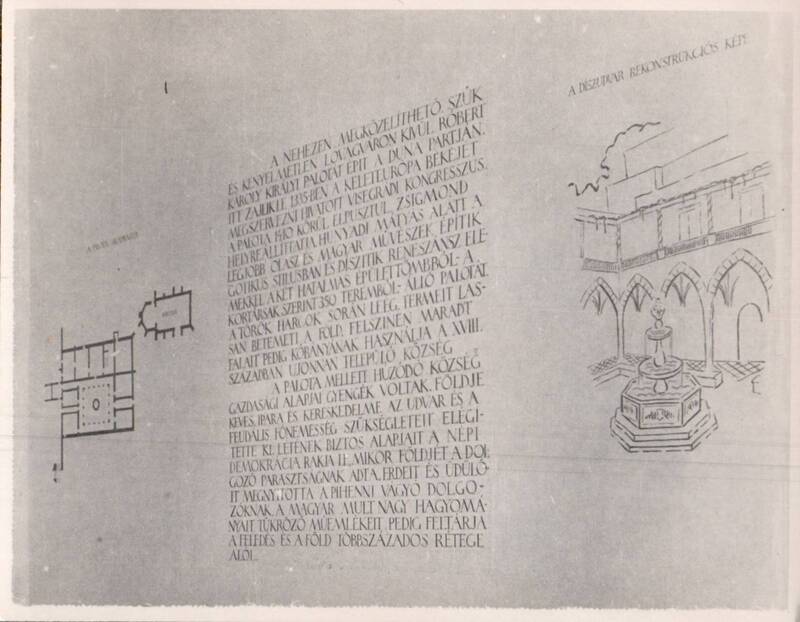 A NEHEZEN MEGKÖZELITHETŐ, SZŰK
ÉS KÉNYELMETLEN LOVAGVÁRON KIVÜL RÓBERT
KÁROLY KIRÁLYI PALOTÁT ÉPIT A DUNA PARTJÁN.
ITT ZAJLIK LE 1335-BEN A KELETEURÓPA BÉKÉJÉT
MEGSZERVEZNI HIVATOTT VISEGRÁDI KONGRESSZUS.
A PALOTA 1410 KÖRÜL ELPUSZTUL, ZSIGMOND
HELYREÁLLITTATJA, HUNYADI MÁTYÁS ALATT A
LEGJOBB OLASZ ÉS MAGYAR MŰVÉSZEK ÉPITIK
GÓTIKUS STILUSBAN ÉS DISZITIK RENESZÁNSZ ELE-
MEKKEL A KÉT HATALMAS ÉPÜLETTÖMBBŐL - A
KORTÁRSAK SZERINT 350 TEREMBŐL - ÁLLÓ PALOTÁT.
A TÖRÖK HARCOK SORÁN LEÉG, TERMEIT LAS-
SAN BETEMETI A FÖLD, FELSZINEN MARADT
FALAIT PEDIG KŐBÁNYÁNAK HASZNÁLJA A XVIII.
SZÁZADBAN UJONNAN TELEPÜLŐ KÖZSÉG
A PALOTA MELLETT HUZÓDÓ KÖZSÉG
GAZDASÁGI ALAPJAI GYENGÉK VOLTAK, FÖLDJE
KEVÉS, IPARA ÉS KERESKEDELME AZ UDVAR ÉS A
FEUDÁLIS FŐNEMESSÉG SZÜKSÉGLETEIT ELÉGI-
TETTE KI. LÉTÉNEK BIZTOS ALAPJAIT A NÉPI
DEMOKRÁCIA RAKJA LE, MIKOR FÖLDJÉT A DOL-
GOZÓ PARASZTSÁGNAK ADTA, ERDEIT ÉS ÜDÜLŐ-
IT MEGNYITOTTA A PIHENNI VÁGYÓ DOLGO-
ZÓKNAK, A MAGYAR MULT NAGY HAGYOMÁ-
NYAIT TÜKRÖZŐ MŰEMLÉKEIT PEDIG FELTÁRJA
A FELEDÉS ÉS A FÖLD TÖBBSZÁZADOS RÉTEGE
ALÓL.
A DISZUDVAR REKONSTRUKCIÓS KÉPE